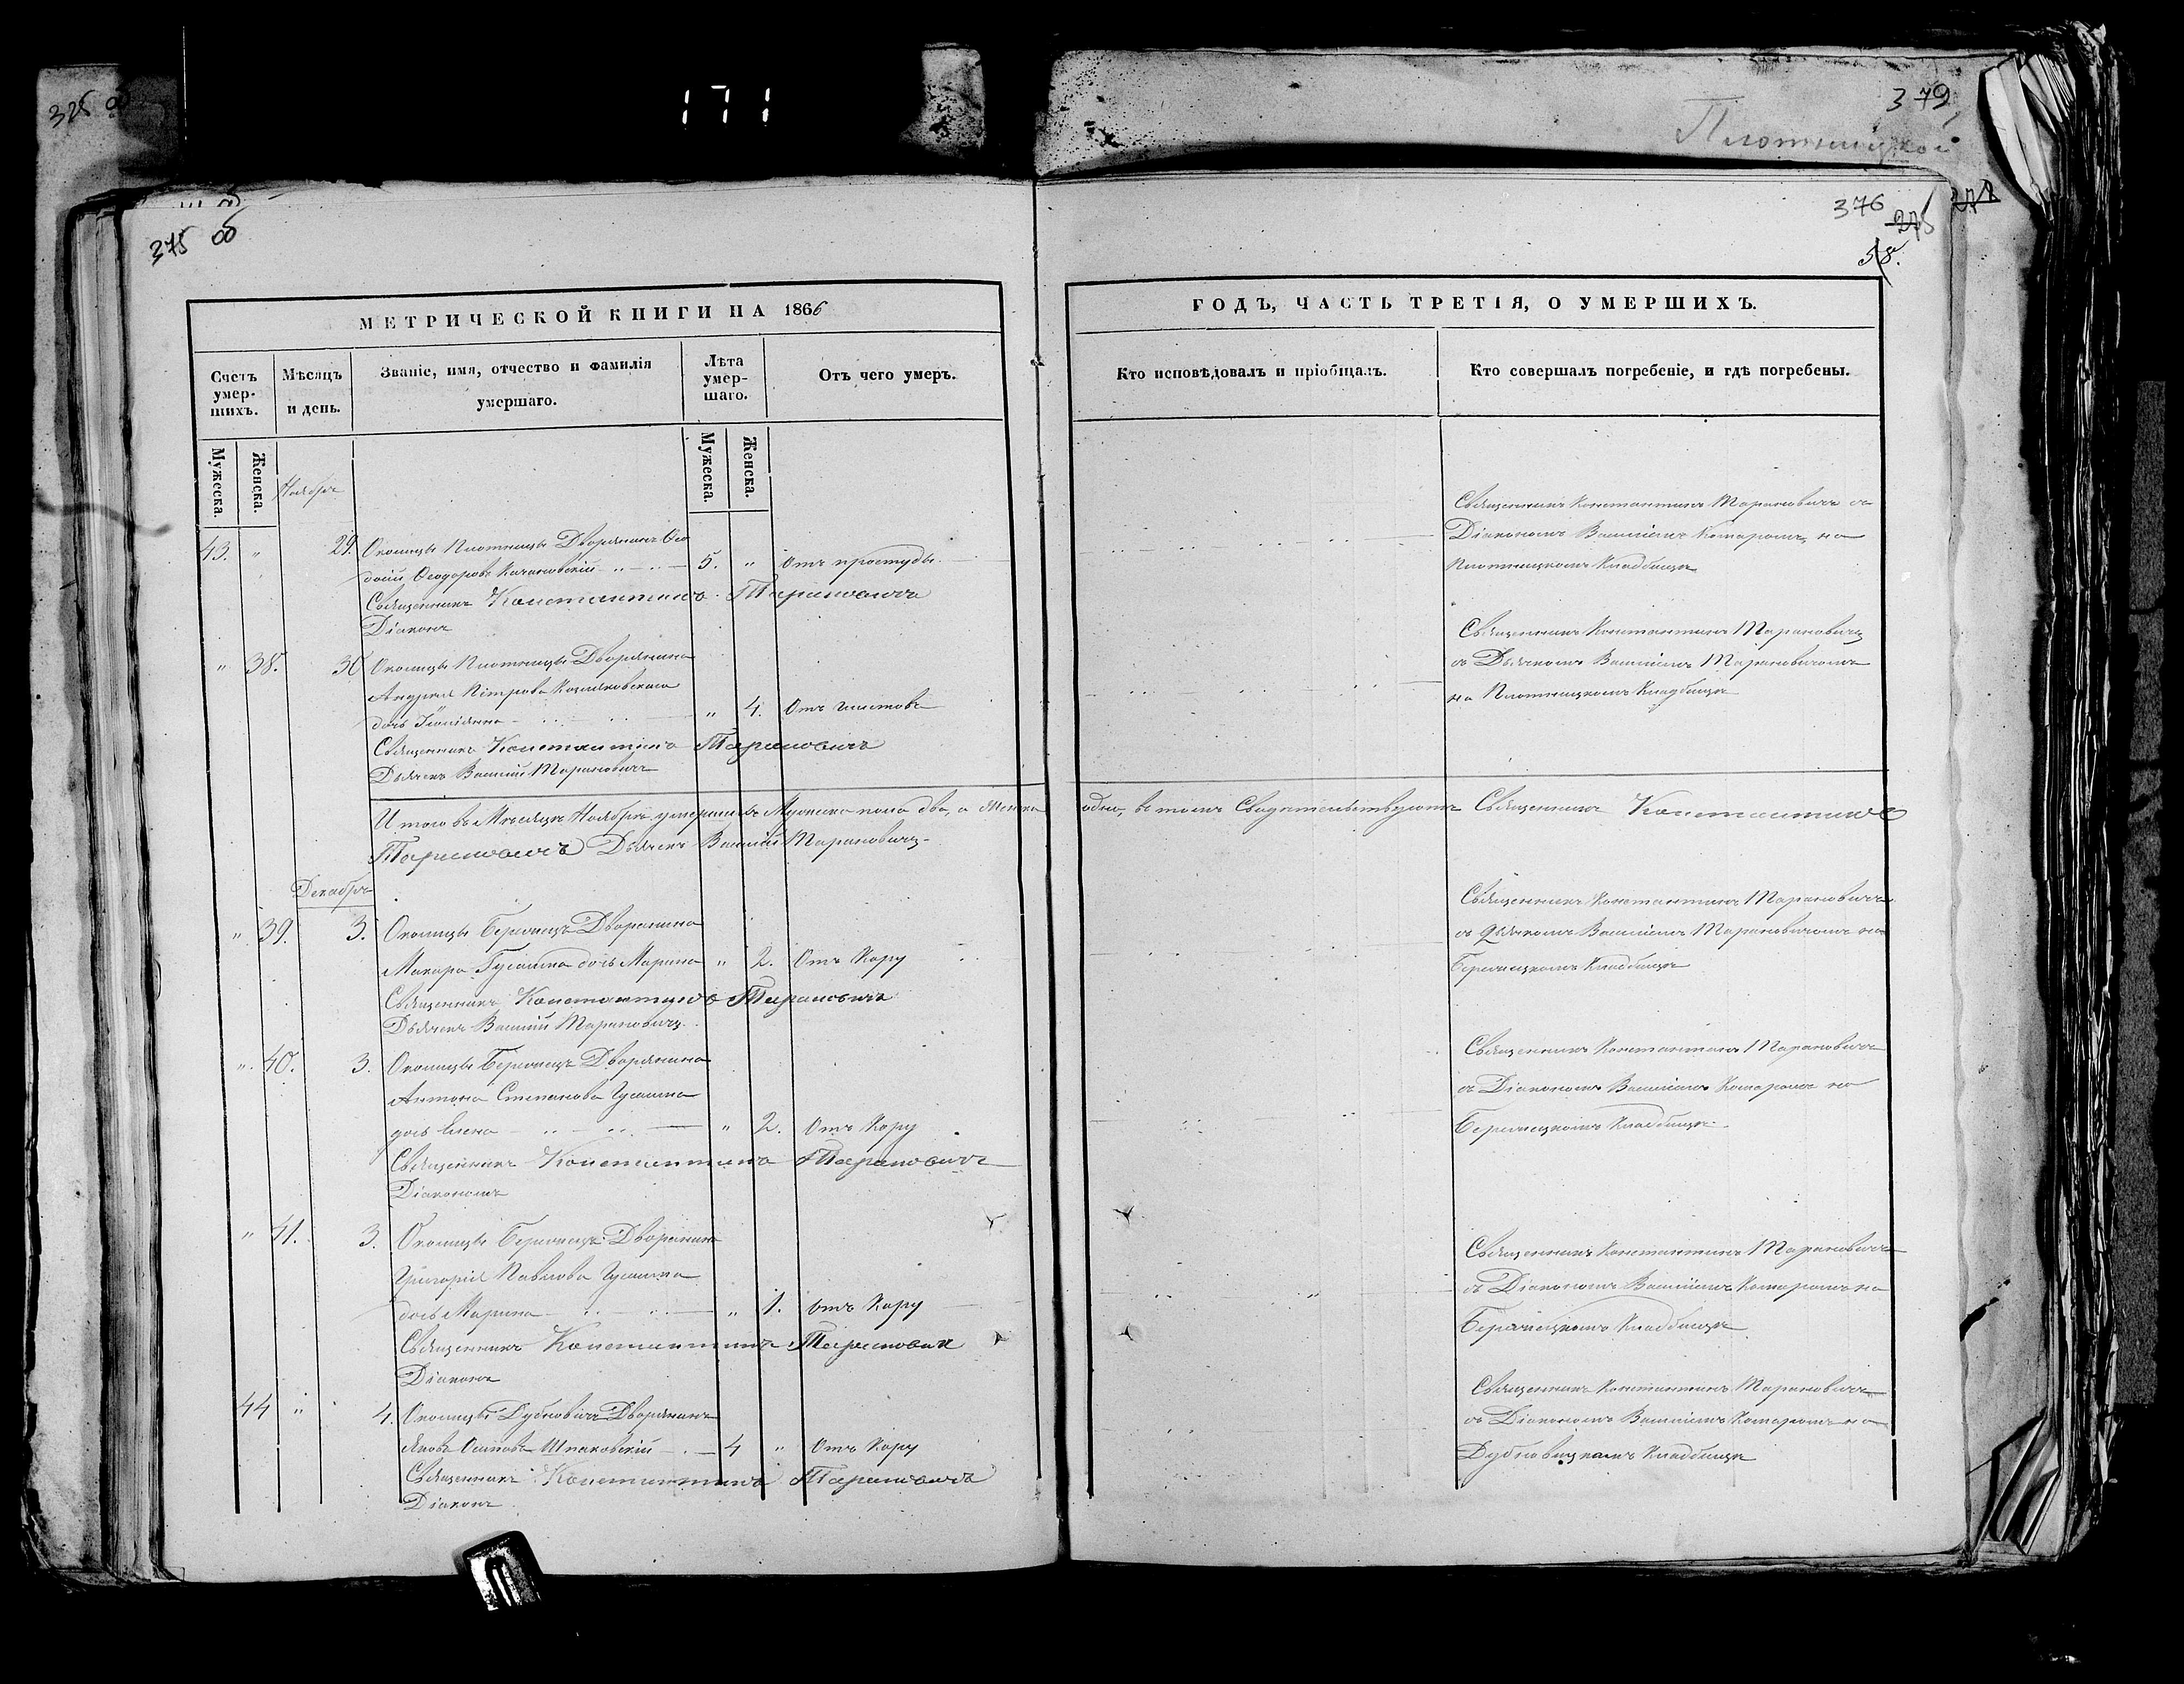 171
325 об
379
Плотницкой
375 об
376
275
58.
МЕТРИЧЕСКОЙ КНИГИ НА 1866
Счетъ умер-шихъ.
Мѣсяцъ и день.
Званіе, имя, отчество и фамилія умершаго.
Лѣта умер-шаго.
Отъ чего умеръ.
Мужеска.
Женска.
Мужеска.
Женска.
Ноябрь
43. " 29. Околицы Плотницы Дворянинъ Ѳео
досій Ѳеодоровъ Качановскій 5. " Отъ простуды
Священникъ Константинъ Тарановичъ
Діаконъ
" 38. 30 Околицы Плотницы Дворянина
Андрея Петрова
дочь " 4. Отъ
Священникъ Константинъ Тарановичъ
Дьячекъ Василій Тарановичъ
Итого въ Мѣсяцѣ Ноябрѣ умершихъ Мужеска пола два, а Женска
Тарановичъ Дьячекъ Василій Тарановичъ
Декабрь
" 39. 3. Околицы Берховцъ Дворянина
Макара Гусаима дочь Марина " 2. Отъ Кору
Священникъ Константинъ Тарановичъ
Дьячекъ Василій Тарановичъ
" 40. 3. Околицы Берховцъ Дворянина
Антона Степанова
дочь Елена " 2. Отъ Кору
Священникъ Константинъ Тарановичъ
Діакономъ
" 41. 3. Околицы Берховцъ Дворянина
Григорія Павлова
дочь Марина " 1. отъ Кору
Священникъ Константинъ Тарановичъ
Діаконъ
44 " 4. Околицы Дубновичъ Дворянинъ
Яковъ Осиповъ Шпаковскій 4 " Отъ Кору
Священникъ Константинъ Тарановичъ
Діаконъ
ГОДЪ, ЧАСТЬ ТРЕТІЯ, О УМЕРШИХЪ.
Кто исповѣдовалъ и пріобщалъ.
Кто совершалъ погребеніе, и гдѣ погребены.
Священникъ Константинъ Тарановичъ съ
Діакономъ Василіемъ Комаромъ на
Плотницкомъ Кладбищѣ
Священникъ Константинъ Тарановичъ
съ Дьячкомъ Василіемъ Тарановичомъ
на Плотницкомъ Кладбищѣ
одна, въ томъ Свидѣтельствуютъ Священникъ Константинъ
Священникъ Константинъ Тарановичъ
съ Дьячкомъ Василіемъ Тарановичомъ на
Кладбищѣ
Священникъ Константинъ Тарановичъ
съ Діакономъ Василіемъ Комаромъ на
Кладбищѣ
Священникъ Константинъ Тарановичъ
съ Діакономъ Василіемъ Комаромъ на
Кладбищѣ
Священникъ Константинъ Тарановичъ
съ Діакономъ Василіемъ Комаромъ на
Дубновицкомъ Кладбищѣ